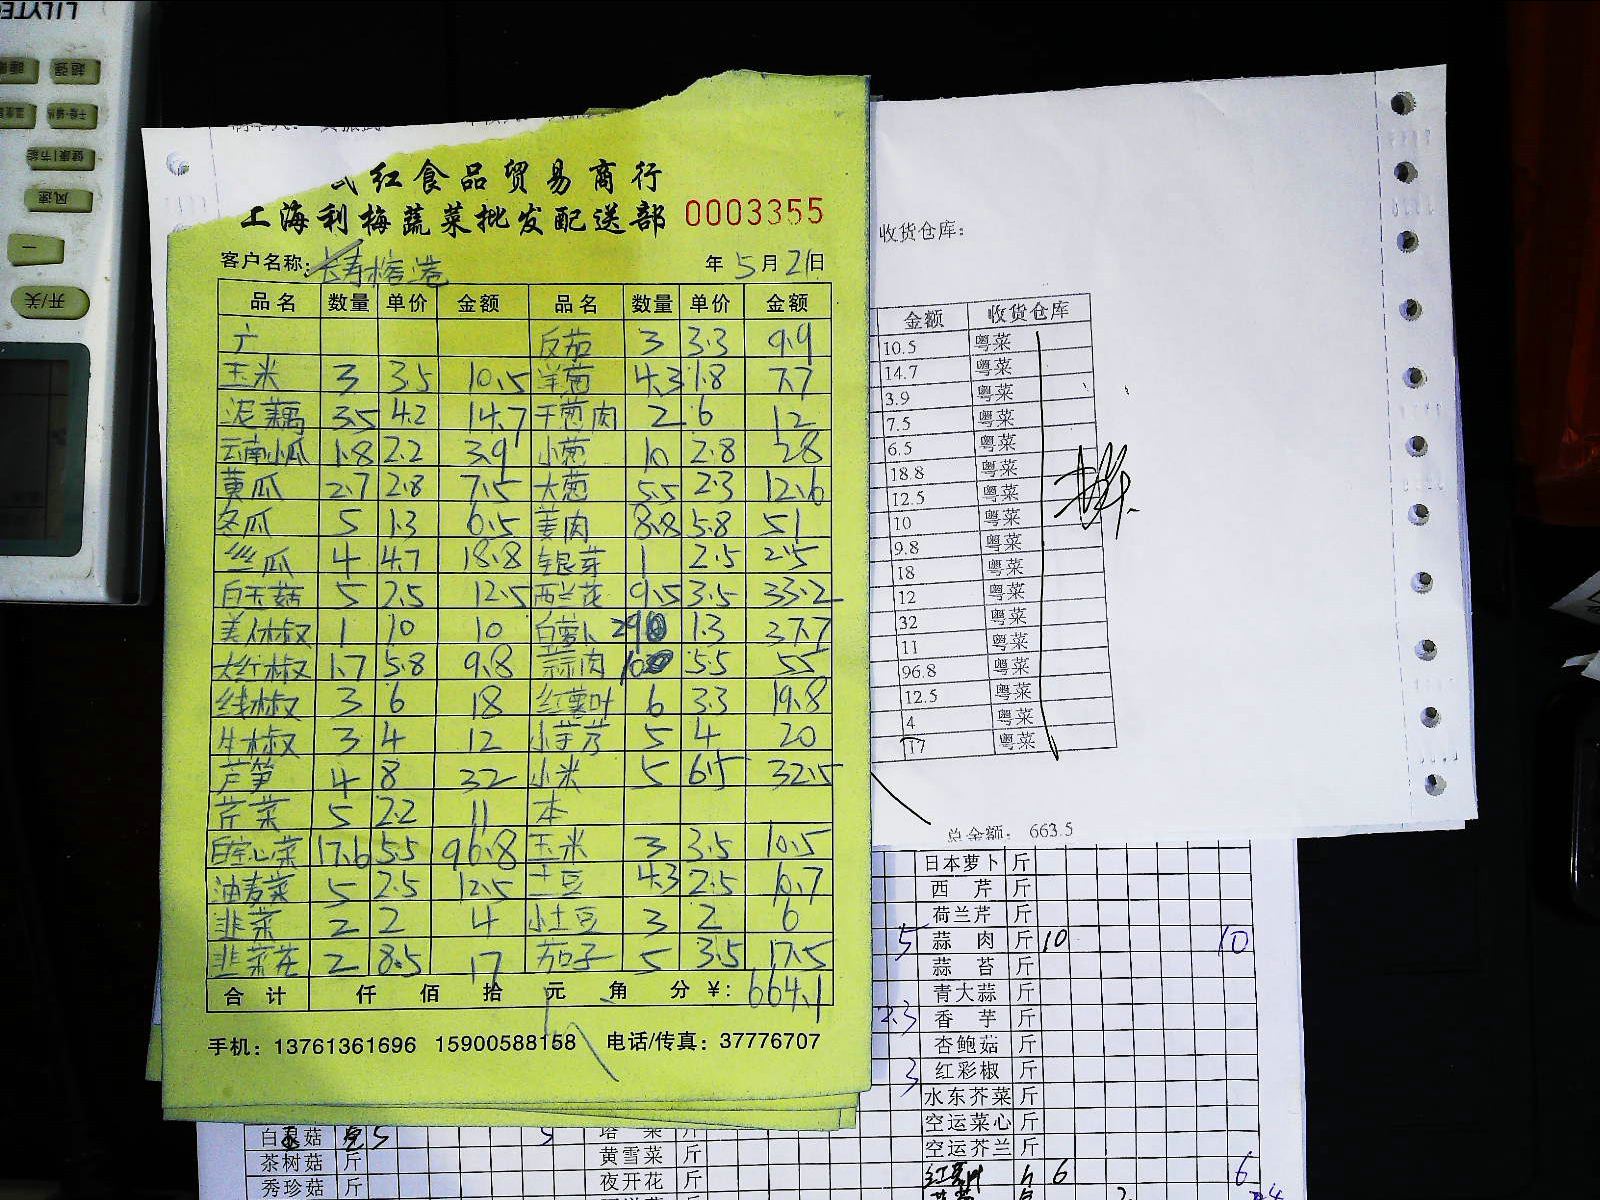 LILYTE
超强
健康|节能
风速
一
开/关
红食品贸易商行
上海利梅蔬菜批发配送部 0003355
客户名称: 年 5 月 21 日
品名 数量 单价 金额 品名 数量 单价 金额
广 反茄 3 3.3 9.9
玉米 3 3.5 10.5 洋葱 4.3 1.8 7.7
泥藕 3.5 4.2 14.7 干葱肉 2 6 12
云南小瓜 1.8 2.2 3.9 小葱 10 2.8 28
黄瓜 2.7 2.8 7.5 大葱 5.5 2.3 12.6
冬瓜 5 1.3 6.5 姜肉 8.8 5.8 51
丝瓜 4 4.7 18.8 银芽 1 2.5 2.5
白玉菇 5 2.5 12.5 西兰花 9.5 3.5 33.2
美人椒 1 10 10 白萝卜 29 1.3 37.7
大红椒 1.7 5.8 9.8 蒜肉 10 5.5 55
线椒 3 6 18 红薯叶 6 3.3 19.8
牛椒 3 4 12 小芋艿 5 4 20
芦笋 4 8 32 小米 5 6.5 32.5
芹菜 5 2.2 11 本
白空心菜 17.6 5.5 96.8 玉米 3 3.5 10.5
油麦菜 5 2.5 12.5 土豆 4.3 2.5 10.7
韭菜 2 2 4 小土豆 3 2 6
韭菜花 2 8.5 17 茄子 5 3.5 17.5
合计 仟 佰 拾 元 角 分 ¥: 664.1
手机: 13761361696 15900588158 电话/传真: 37776707
收货仓库:
金额 收货仓库
10.5 粤菜
14.7 粤菜
3.9 粤菜
7.5 粤菜
6.5 粤菜
18.8 粤菜
12.5 粤菜
10 粤菜
9.8 粤菜
18 粤菜
12 粤菜
32 粤菜
11 粤菜
96.8 粤菜
12.5 粤菜
4 粤菜
17 粤菜
总金额: 663.5
日本萝卜 斤
西芹 斤
荷兰芹 斤
5 蒜肉 斤 10 10
蒜苔 斤
青大蒜 斤
2.3 香芋 斤
杏鲍菇 斤
3 红彩椒 斤
水东芥菜 斤
空运菜心 斤
空运芥兰 斤
6 6
白 菇 5 5 塔菜 斤
茶树菇 斤 黄雪菜 斤
秀珍菇 斤 夜开花 斤